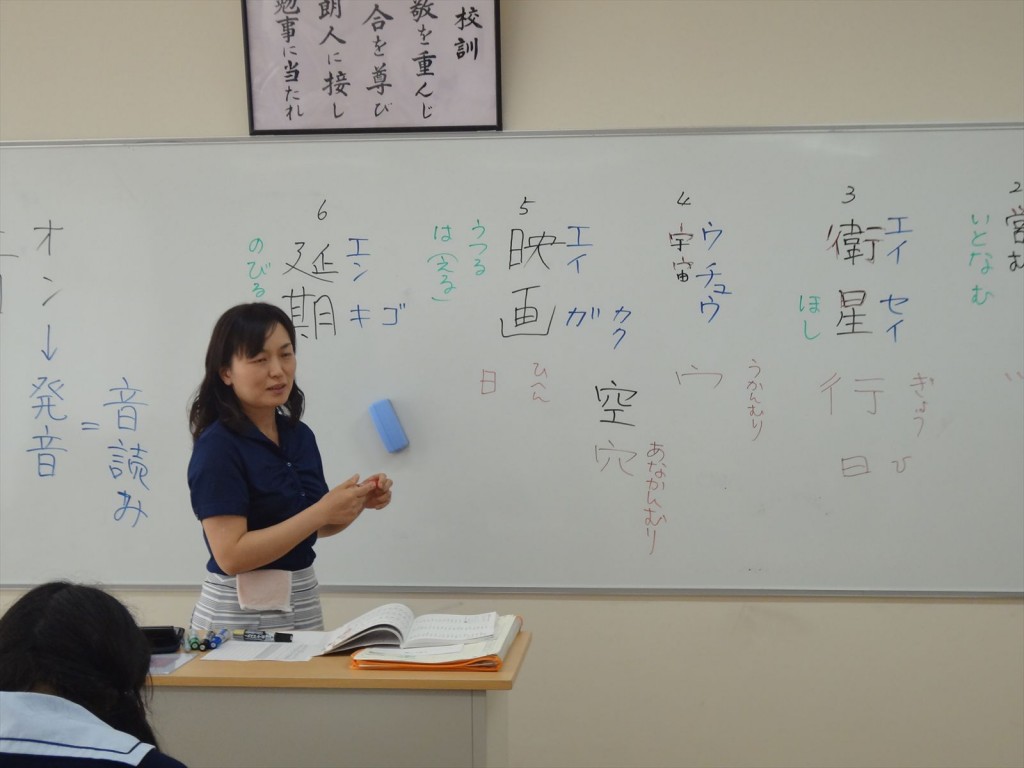 校訓
敬を重んじ
合を尊び
朗人に接し
勉事に当たれ
2
営む
いとなむ
3
衛星
エイ
セイ
ほし
行
ぎょう
日
ひ
4
宇宙
ウ
チュウ
うかんむり
空
穴
あなかんむり
5
映画
エイ
ガ
カク
うつる
は(える)
日
ひへん
6
延期
エン
キ
ゴ
のびる
音読み
=
オン→発音